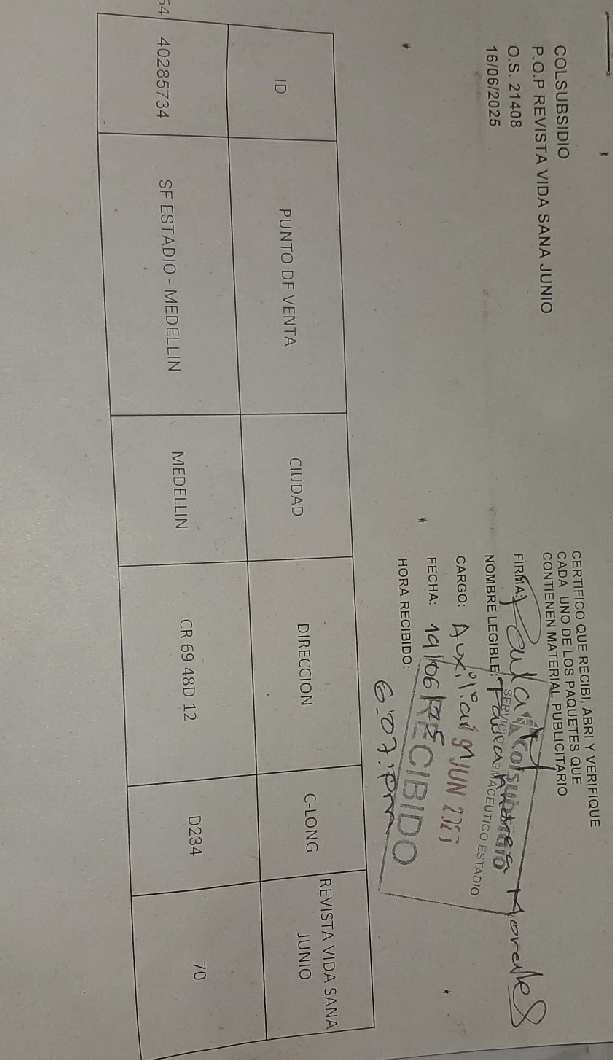 COLSUBSIDIO
P.O.P REVISTA VIDA SANA JUNIO
O.S. 21408
16/06/2025
CERTIFICO QUE RECIBI, ABRI Y VERIFIQUE
CADA UNO DE LOS PAQUETES QUE
CONTIENEN MATERIAL PUBLICITARIO
FIRMA: Paula
NOMBRE LEGIBLE: Paula Morales
CARGO: Auxiliar
FECHA: 19/06/25
HORA RECIBIDO: 6:07 pm
Colsubsidio
FARMACEUTICO ESTADIO
19 JUN 2025
RECIBIDO
ID PUNTO DE VENTA CIUDAD DIRECCION C-LONG REVISTA VIDA SANA JUNIO
64 40285734 SF ESTADIO - MEDELLIN MEDELLIN CR 69 48D 12 D234 70